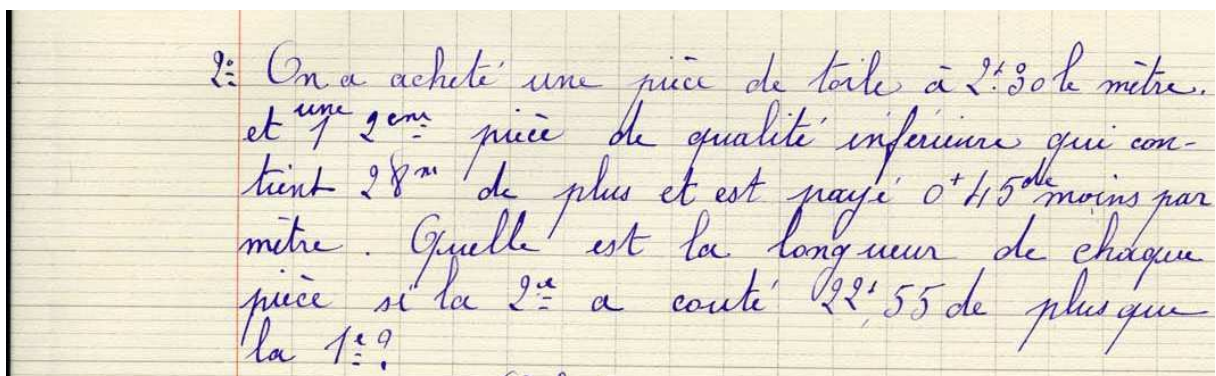 2º On a acheté une pièce de toile à 2f.30 le mètre.
et une 1 2eme pièce de qualité inférieure qui con-
tient 28m de plus et est payé 0f45 de moins par
mètre. Quelle est la longueur de chaque
pièce si la 2e a couté 22f.55 de plus que
la 1e?